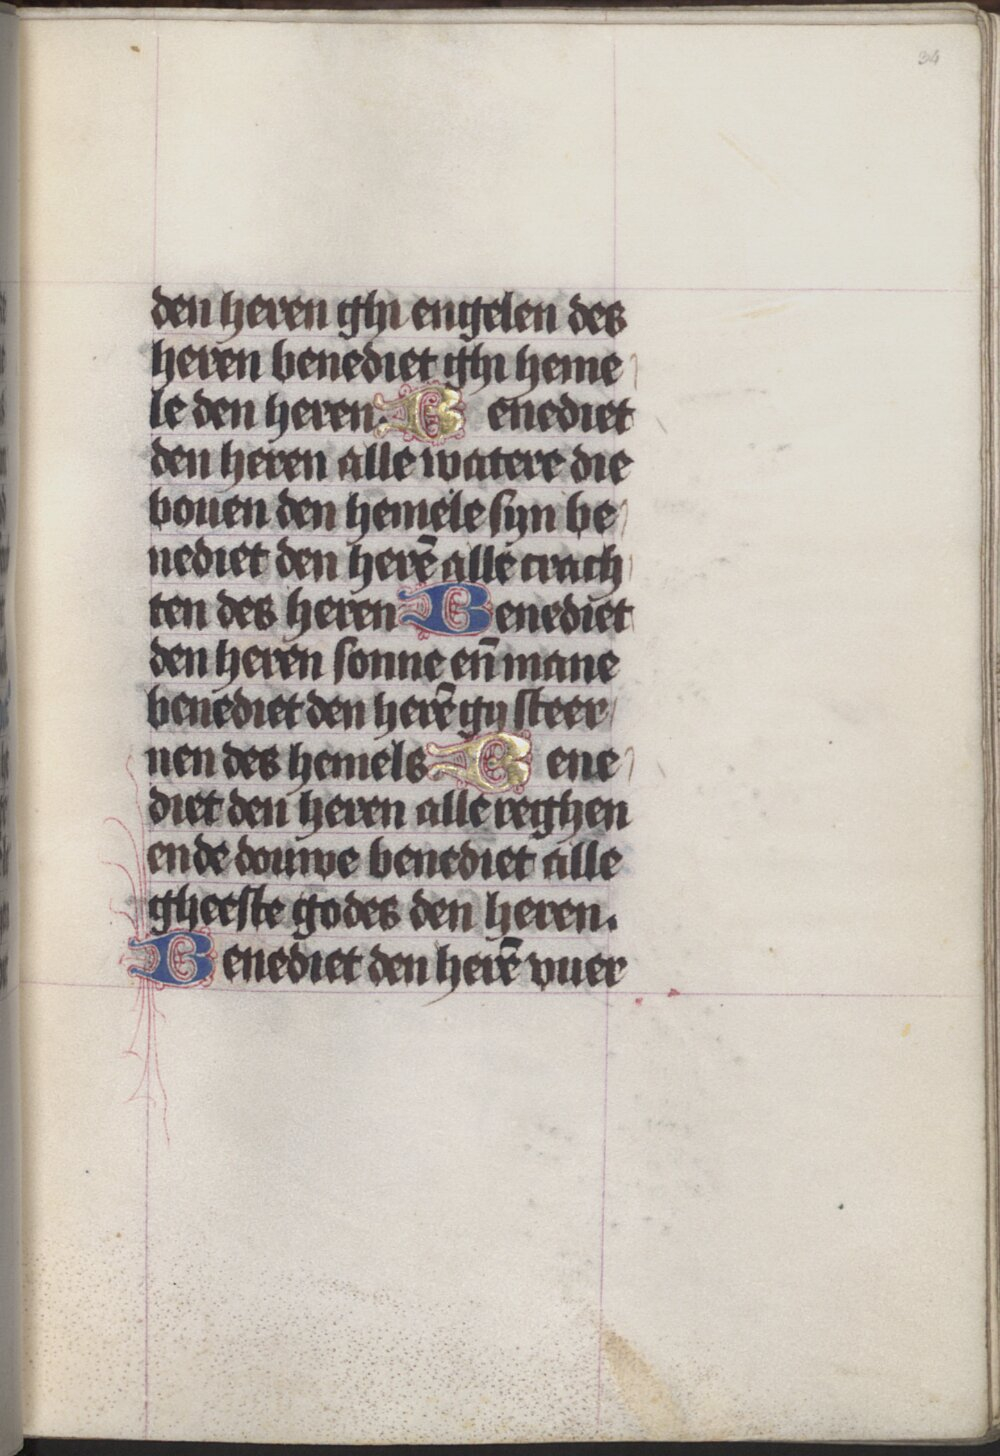 34
den heren ghi engelen des
heren benediet ghi heme
le den heren. Benediet
den heren alle watere die
bouen den hemele sijn be
nediet den herē alle crach
ten des heren Benediet
den heren sonne en̄ mane
benediet den herē gij steer
nen des hemels Bene
diet den heren alle reghen
ende douwe benediet alle
gheeste godes den heren.
Benediet den herē vuer